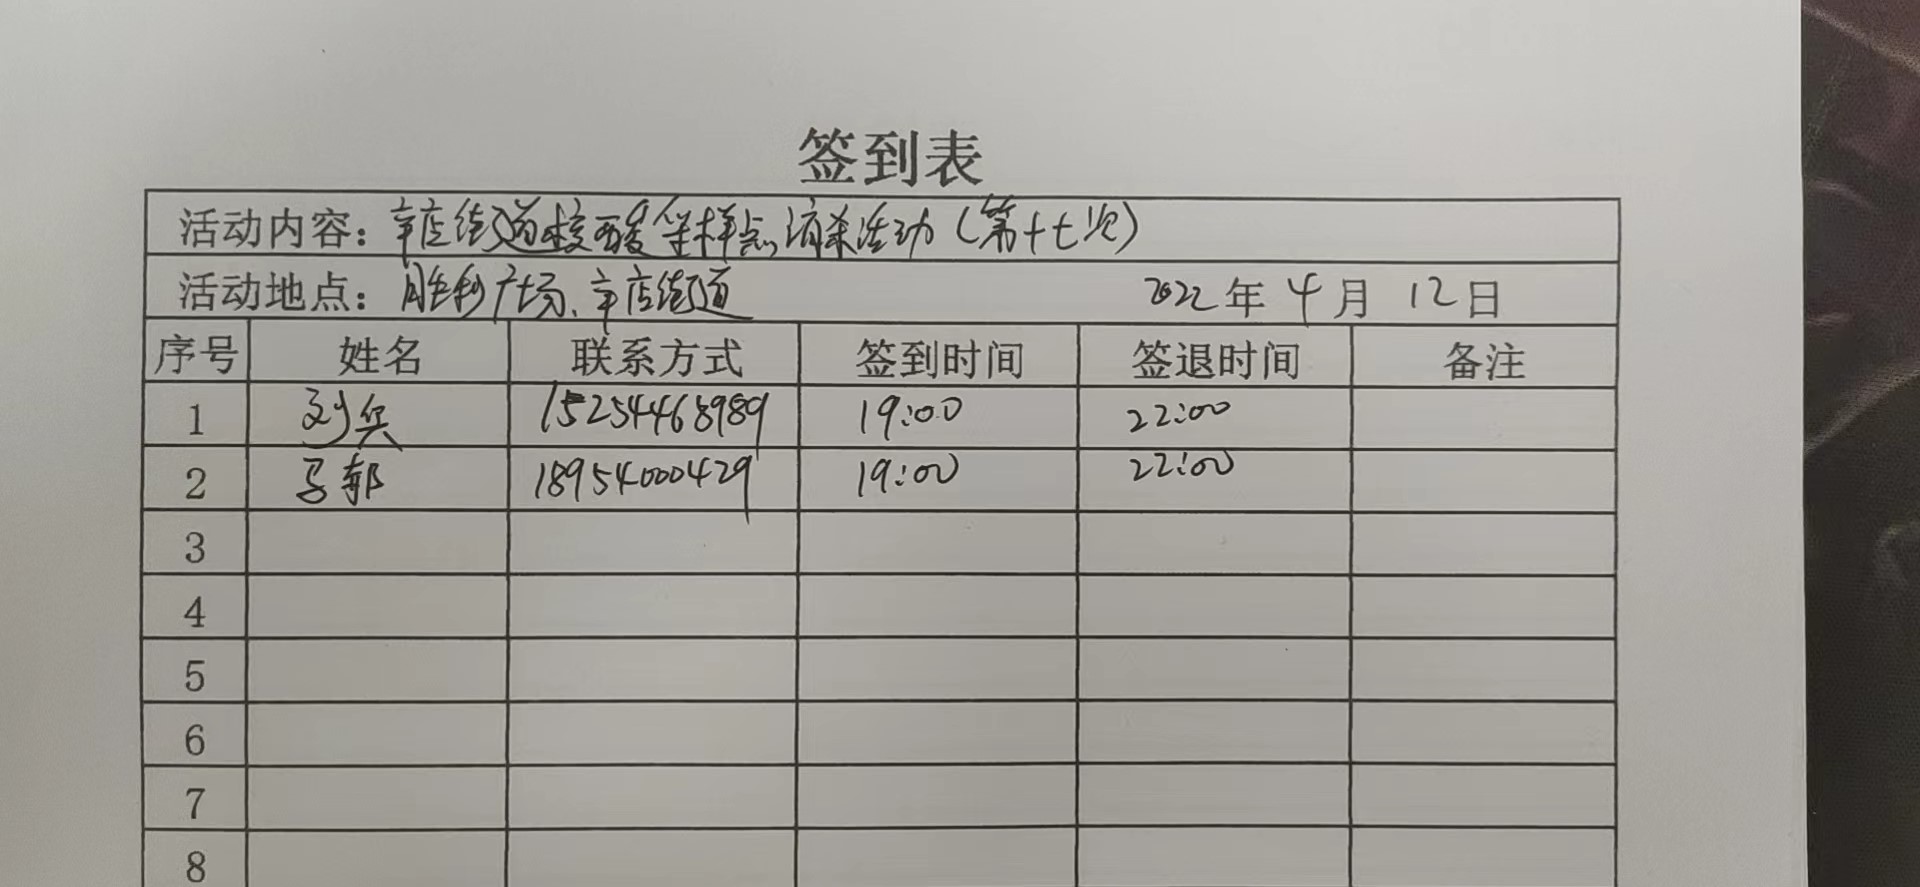 签到表
活动内容：辛店街道核酸采样点消杀活动（第十七次）
活动地点：胜利广场、辛店街道 2022年4月12日
序号 姓名 联系方式 签到时间 签退时间 备注
1 刘兵 15254468989 19:00 22:00
2 马郁 18954000429 19:00 22:00
3
4
5
6
7
8